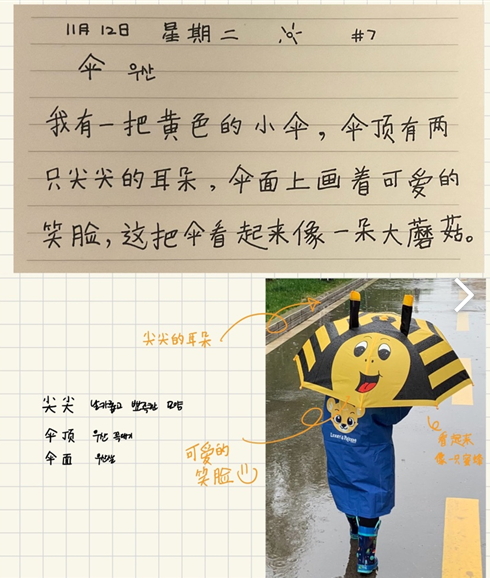 11月 12日 星期二 #7
伞 우산
我有一把黄色的小伞，伞顶有两
只尖尖的耳朵，伞面上画着可爱的
笑脸，这把伞看起来像一朵大蘑菇。
尖尖的耳朵
尖尖 날카롭고 뾰족한 모양
伞顶 우산 꼭대기
伞面 우산살
可爱的
笑脸
看起来
像一只蜜蜂